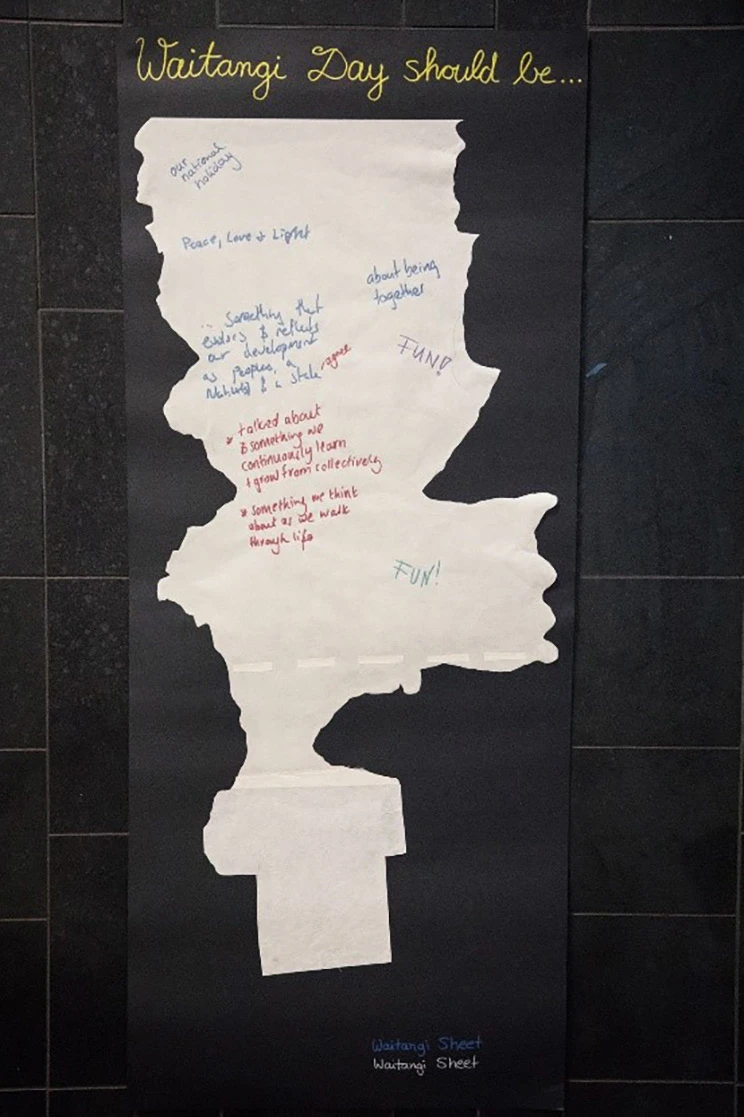 Waitangi Day should be...
our
national
holiday
Peace, Love & Light
about being
together
... Something that
evolves & reflects
our development
as peoples, a
Nation & a State
agree
FUN!
* talked about
& something we
continuously learn
+ grow from collectively
* something we think
about as we walk
through life
FUN!
Waitangi Sheet
Waitangi Sheet